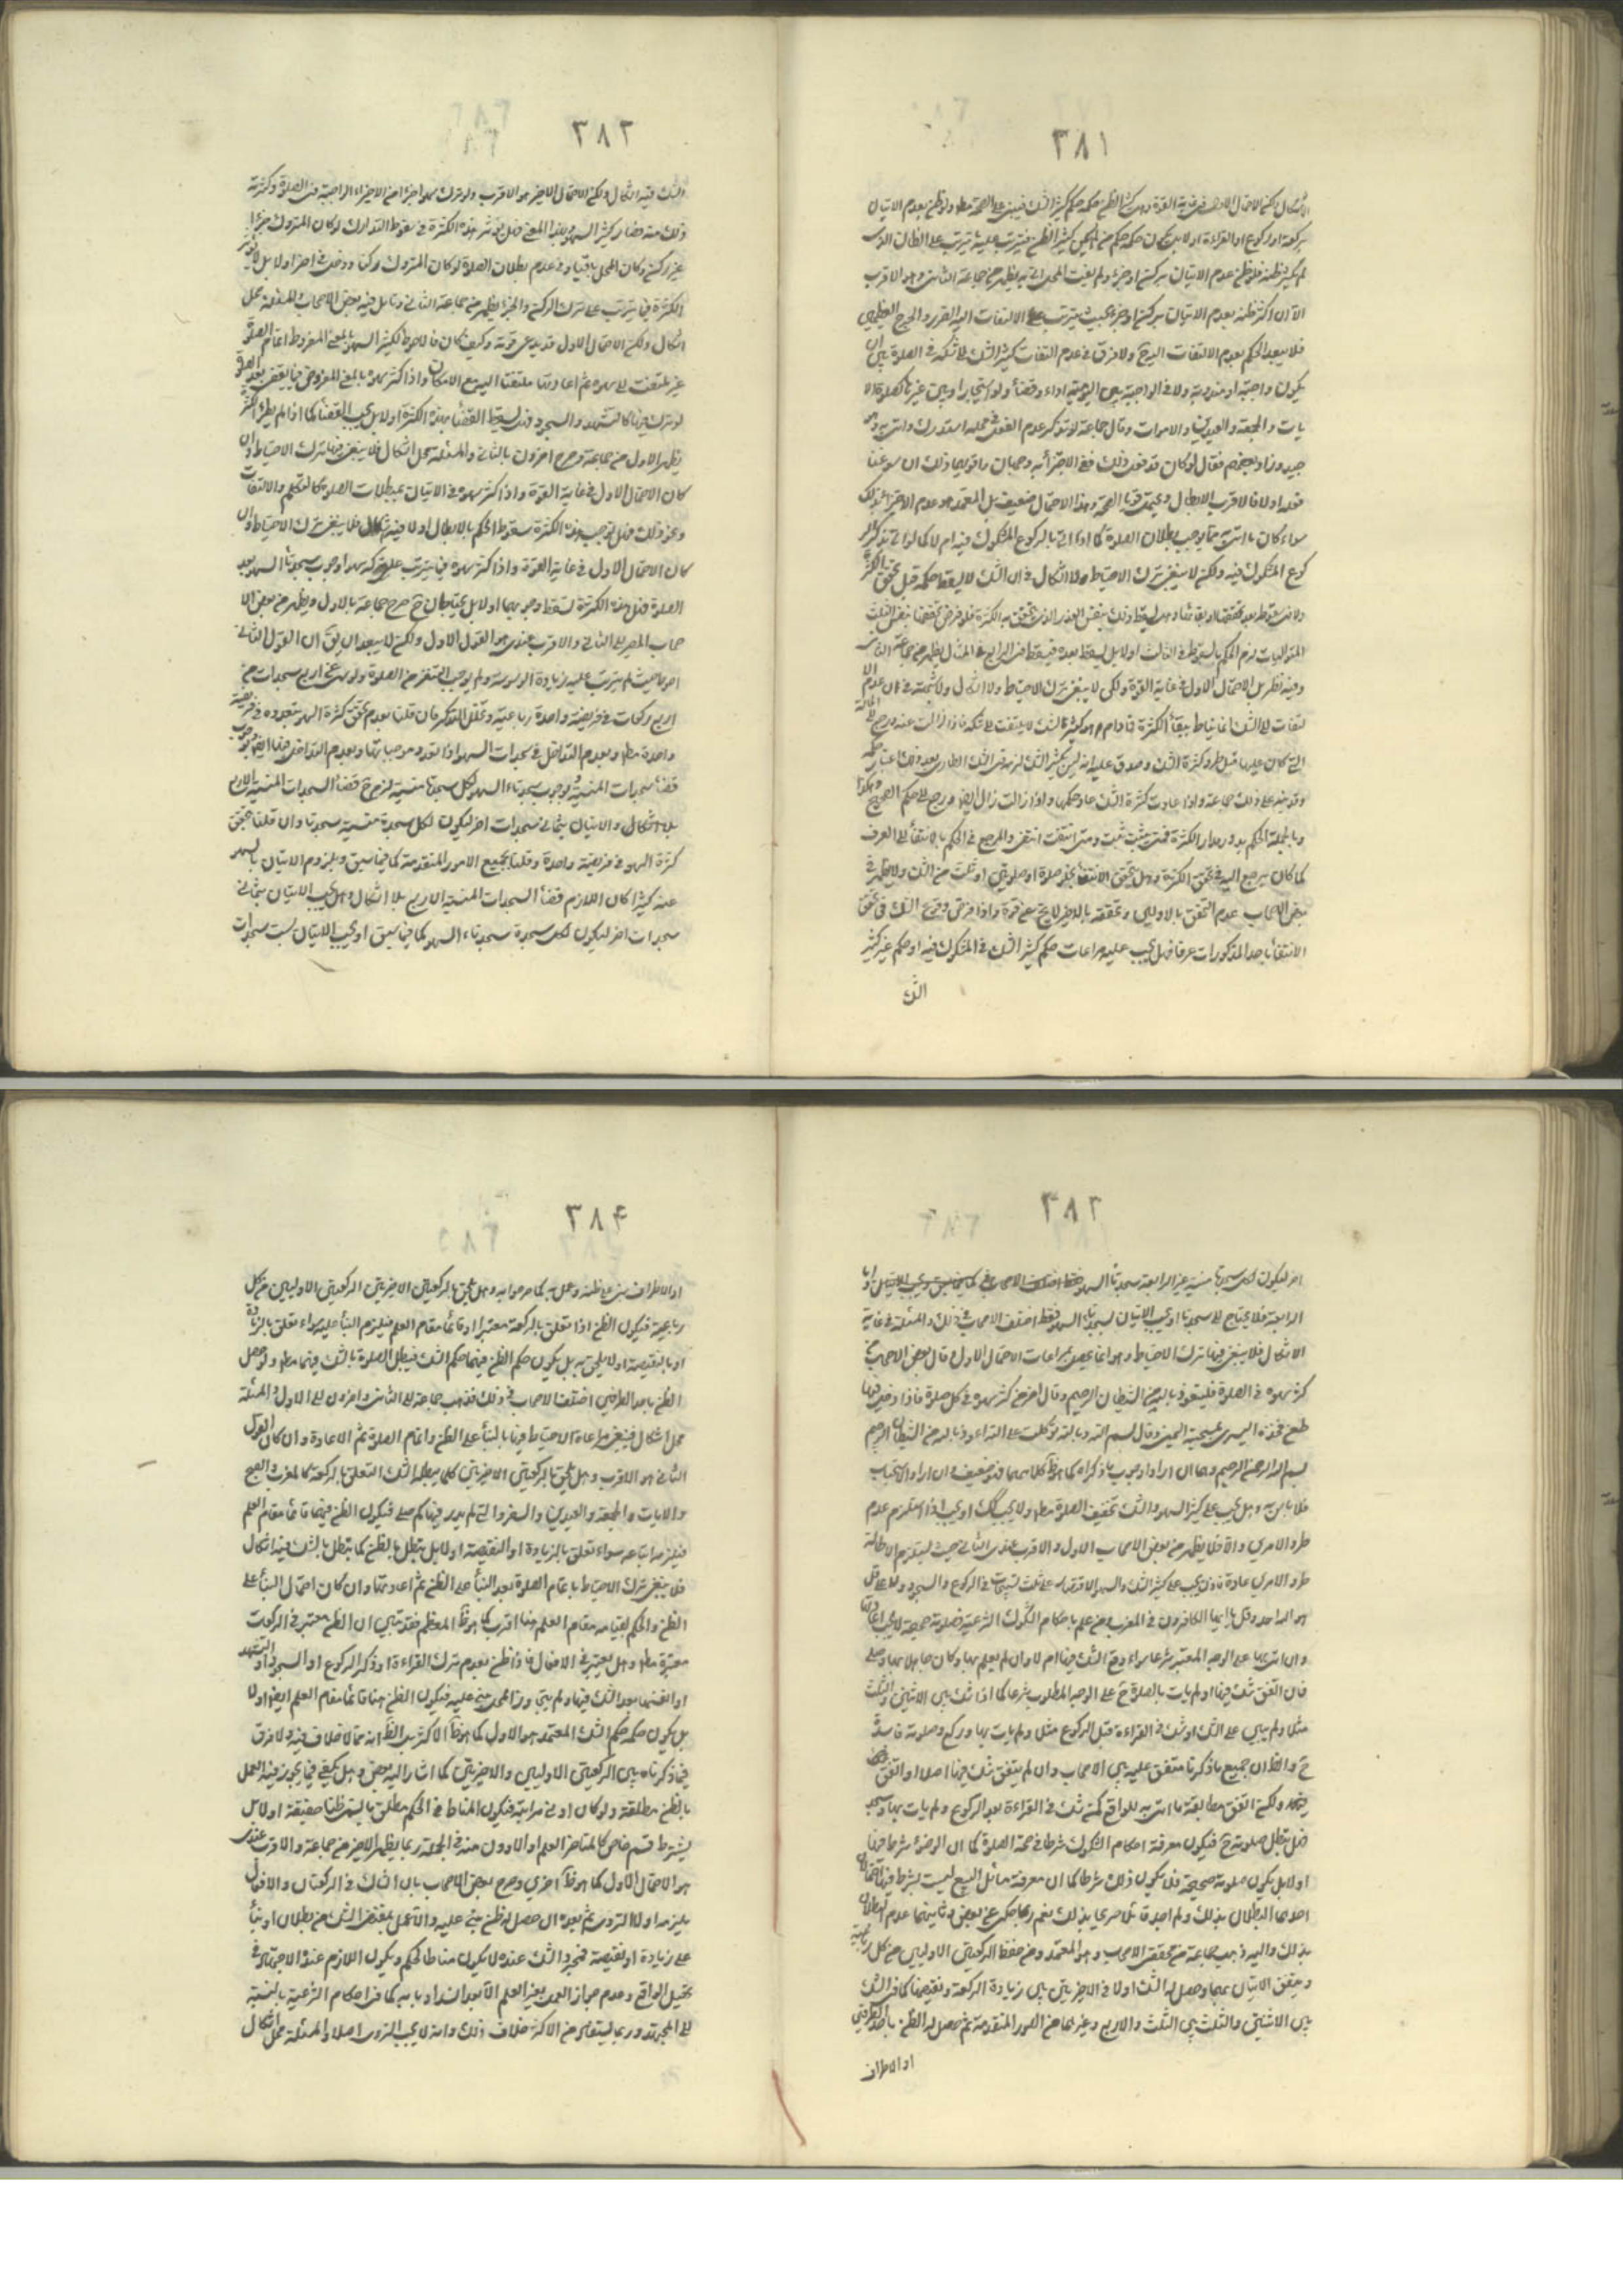 ٣٨١
بركعة او ركوع او القراءة اولا بل يكون حكمه حكم من لم يكن كثير الظن فيترتب عليه ما يترتب على الظان الذى
لم يكثر ظنه فلو ظن عدم الاتيان بركن او جزء ولم يفت المحل اتى به يظهر من جماعة الثانى وهو الاقرب
الا ان اكثر ظنه بعدم الاتيان بركن او جزء بحيث يترتب على الالتفات اليه الضرر والحرج العظيم
فلا يبعد الحكم بعدم الالتفات اليه ح ولا فرق فى عدم التفات كثير الشك لا شكه فى الصلوة بين ان
يكون واجبة او مندوبة ولا فى الواجبة بين اليومية اداء وقضاء ولو استيجارا وبين غيرها كصلوة الا
يات والجمعة والعيدين والاموات وقال جماعة لو تذكر عدم الفوت فى محله استدرك واتى به وهو
جيد وزاد بعضهم فقال لو كان قد فعل ذلك ففى الاجتزاء به وجهان
سواء كان ما اتى به مما يوجب بطلان الصلوة كما اذا اتى بالركوع المشكوك فيه ام لا كما لو اتى
كوع المشكوك فيه ولكن لا ينبغى ترك الاحتياط ولا اشكال فى ان الشك لا يسقط حكمه قبل تحقق الكثرة
المتواليات لزم الحكم بالسقوط فى الثالث اولا بل يسقط بعده فيسقط فى الرابع فى المثال يظهر من جماعة الثانى
وفيه نظر بل الاحتمال الاول فى غاية القوة ولكن لا ينبغى ترك الاحتياط ولا اشكال ولا شبهة فى ان عدم الا
لتفات الى الشك انما يناط ببقاء الكثرة فما دام هو كثير الشك لا يلتفت الى شكه فاذا زالت عنه رجع الى الحالة
التى كان عليها قبل طرو كثرة الشك وصدق عليه انه ليس بكثير الشك لزمه فى الشك الطارى بعد ذلك اعتبار حكمه
وقد نبه على ذلك جماعة واذا عادت كثرة الشك عاد حكمها واذا زالت زال ايضا ورجع الى حكم الصحيح وهكذا
وبالجملة الحكم يدور مدار الكثرة فمتى ثبتت ثبت ومتى انتفت انتفى والمرجع فى الحكم بالانتفاء الى العرف
كما كان يرجع اليه فى تحقق الكثرة وهل يتحقق الانتفاء بخلو صلوة او صلوتين او ثلث من الشك
بعض الاصحاب عدم التحقق بالاوليين وتحققه بالاخير لا يخ عن قوة واذا فرض وقوع الشك فى تحقق
الانتفاء باحد المذكورات عرفا فهل يجب عليه مراعات حكم كثير الشك فى المشكوك فيه او حكم غير كثير
الشك
٣٨٢
الشك فيه اشكال ولكن الاحتمال الاخير هو الاقرب ولو ترك سهوا جزءا من الاجزاء الواجبة فى الصلوة وكثر منه
ذلك منه فصار كثير السهو بهذا المعنى فهل يؤثر هذه الكثرة فى سقوط التدارك لو كان المتروك جزءا
غير ركن وكان المحل باقيا وفى عدم بطلان الصلوة لو كان المتروك ركنا ودخل فى اخر اولا بل لا يؤثر
الكثرة فيما يترتب على ترك الركن والجزء يظهر من جماعة الثانى
اشكال ولكن الاحتمال الاول قد يدعى قوته وكيف كان فالاحوط لكثير السهو بالمعنى المفروض اتمام الصلوة
غير ملتفت الى سهوه ثم اعادتها ملتفتا اليه مع الامكان واذا كثر سهوه بالمعنى المفروض فيما يقضى بعد الصلوة
لو ترك فيها كالتشهد والسجود فهل يسقط القضاء بهذه الكثرة اولا بل يجب القضاء كما اذا لم يطرء الكثرة
يظهر الاول من جماعة وصرح اخرون بالثانى والمسئلة محل اشكال فلا ينبغى فيها ترك الاحتياط وان
كان الاحتمال الاول فى غاية القوة واذا كثر سهوه فى الاتيان بمبطلات الصلوة كالتكلم والالتفات
ونحو ذلك فهل يوجب هذه الكثرة سقوط الحكم بالابطال اولا فيه اشكال فلا ينبغى ترك الاحتياط وان
كان الاحتمال الاول فى غاية القوة واذا كثر سهوه فيما يترتب على تركه سهوا وجوب سجدتا السهو بعد
الصلوة فهل هذه الكثرة تسقط وجوبهما اولا بل يجتاجان ح صرح جماعة بالاول ويظهر من بعض الا
صحاب المصير الى الثانى والاقرب عندى هو القول الاول ولكن لا يبعد ان يق ان القول الثانى
احوط حيث لم يترتب عليه زيادة الوسوسة ولم يوجب التنفر من الصلوة ولو سهى عن اربع سجدات من
اربع ركعات فى فريضة واحدة رباعية وتخلل التذكر فان قلنا بعدم تحقق كثرة السهو بتعدده فى فريضة
واحدة مط وبعدم التداخل فى سجدات السهو اذا تعدد موجباتها وبعدم التداخل هنا ايضا
قضاء سجدات المنسية ووجوب سجدتا السهو لكل سجدة منسية لزم ح قضاء السجدات المنسية الاربع
بلا اشكال والاتيان بثمانى سجدات اخر ليكون لكل سجدة منسية سجدتا وان قلنا بتحقق
كثرة السهو فى فريضة واحدة وقلنا بجميع الامور المتقدمة كما فيما سبق وبلزوم الاتيان بالسهو
عنه كثيرا كان اللازم قضاء السجدات المنسية الاربع بلا اشكال وهل يجب الاتيان بثمانى
سجدات اخر ليكون لكل سجدة سجدتاء السهو كما فيما سبق او يجب الاتيان بست سجدات
٣٨٣
الرابعة فلا يحتاج الى سجدتا او يجب الاتيان بسجدتى السهو فقط اختلف الاصحاب فى ذلك والمسئلة فى غاية
الاشكال فلا ينبغى فيها ترك الاحتياط وهو انما يحصل بمراعات الاحتمال الاول وقال بعض الاصحاب من
كثر سهوه فى الصلوة فليتعوذ بالله من الشيطان الرجيم وقال اخر من كثر سهوه فى كل صلوة فاذا دخل فيها
طعن فخذه اليسرى بمسبحته اليمنى وقال بسم الله وبالله توكلت على الله اعوذ بالله من الشيطان الرجيم
بسم الله الرحمن الرحيم وهما ان ارادا وجوب ما ذكراه كما هو ظ كلامهما فهو ضعيف وان ارادا الاستحباب
فلا باس به وهل يجب على كثير السهو والشك تخفيف الصلوة مط اولا يجب كك او يجب اذا استلزم عدم
طرو الامرين والا فلا يظهر من بعض الاصحاب الاول والاقرب عندى الثانى حيث لا يستلزم الاطالة
طرو الامرين عادة فاذن يجب على كثير الشك والسهو الاقتصار على ثلث تسبيحات فى الركوع والسجود ولا على قل
هو الله احد وقل يا ايها الكافرون فى المغرب من علم باحكام الشكوك الشرعية فصلوته صحيحة لا يجب اعادتها
وان اتى بها على الوجه المعتبر شرعا سواء وقع الشك فيها ام لا وان لم يعلم بها وكان جاهلا بها وصلى
فان اتفق شك فيها ولم يات بالصلوة ح على الوجه المطلوب شرعا كما اذا شك بين الاثنين والثلث
مثلا ولم يبن على الثلث او شك فى القراءة قبل الركوع مثلا ولم يات بها وركع وصلوته فاسدة
ح والظ ان جميع ما ذكرنا متفق عليه بين الاصحاب وان لم يتفق شك فيها اصلا او اتفق
فيها ولكن اتفق مطابقة ما اتى به للواقع كمن شك فى القراءة بعد الركوع ولم يات بها وسجد
فهل يبطل صلوته ح فيكون معرفة احكام الشكوك شرطا فى صحة الصلوة كما ان الوضوء شرط فيها
اولا بل يكون صلوته صحيحة فلا يكون ذلك شرطا كما ان معرفة مسائل البيع ليست بشرط فيها احتمالان
احدهما البطلان بذلك ولم اجد قائلا صريحا بذلك نعم ربما حكى عن بعض وثانيهما عدم البطلان
بذلك واليه ذهب جماعة من محققى الاصحاب وهو المعتمد ومن حفظ الركعتين الاوليين من كل رباعية
وتيقن الاتيان بهما وحصل له الشك اولا فى الاخريتين بين زيادة الركعة ونقيصها كما فى الشك
بين الاثنين والثلث بين الثلث والاربع وغيرهما من الصور المتقدمة ثم حصل له الظن باحد الطرفين
او الاطراف
٣٨۴
او الاطراف بنى على ظنه وعمل به كما صرحوا به وهل يلحق بالركعتين الاخريتين الركعتين الاوليين من كل
رباعية فيكون الظن اذا تعلق بالركعة معتبرا وقائما مقام العلم فيلزم البناء عليه سواء تعلق بالزيادة
او بالنقيصة اولا يلحق به بل يكون حكم الظن فيهما حكم الشك فيبطل الصلوة بالشك فيهما مط ولو حصل
الظن باحد الطرفين اختلف الاصحاب فى ذلك فذهب جماعة الى الثانى واخرون الى الاول والمسئلة
محل اشكال فينبغى مراعاة الاحتياط فيها بالبناء على الظن واتمام الصلوة ثم الاعادة وان كان القول
الثانى هو الاقرب وهل يلحق بالركعتين الاخريتين كلما يبطله الشك المتعلق بالركعة كالمغرب والصبح
والايات والجمعة والعيدين والسفر والتى لم يدر فيها كم صلى فيكون الظن فيها قائما مقام العلم
فيلزم اتباعه سواء تعلق بالزيادة او النقيصة اولا بل يبطل بالظن كما يبطل بالشك فيه اشكال
فلا ينبغى ترك الاحتياط باتمام الصلوة بعد البناء على الظن ثم اعادتها وان كان احتمال البناء على
الظن والحكم بقيامه مقام العلم هنا اقرب كما هو ظ المعظم فقد تبين ان الظن معتبر فى الركعات
معتبرة مط وهل يعتبر فى الافعال فاذا ظن بعدم ترك القراءة او ذكر الركوع او السجود او التشهد
او ابعضها بعد الشك فيها ولم يتجاوز المحل بنى عليه فيكون الظن هنا قائما مقام العلم ايضا اولا
بل يكون حكمه حكم الشك المعتمد هو الاول كما هو ظ الاكثر بل الظ انه مما لا خلاف فيه ولا فرق
فيما ذكرناه بين الركعتين الاوليين والاخريتين كما اشار اليه بعض وهل يكفى فيما يجوز فيه العمل
بالظن مطلقه ولو كان ادنى مراتبه فيكون المناط فى الحكم مطلق ما يسمى ظنا حقيقة اولا بل
يشترط قسم خاص كالمتاخر للعلم او الادون منه فى الجملة ربما يظهر الاخير من جماعة والاقرب عندى
هو الاحتمال الاول كما هو ظ اخرى وصرح بعض الاصحاب بان الشاك فى الركعتان والافعال
يلزمه اولا التروى ثم بعده ان حصل له ظن بنى عليه والا عمل بمقتضى الشك من بطلان او بناء
على زيادة او نقيصة فمجرد الشك عنده لا يكون مناطا للحكم ويكون اللازم عنده الاجتهاد فى
تحصيل الواقع وعدم جواز العمل بغير العلم الا بعد انسداد بابه كما فى احكام الشرعية بالنسبة
الى المجتهد وربما يستفاد من الاكثر خلاف ذلك وانه لا يجب التروى اصلا والمسئلة محل اشكال